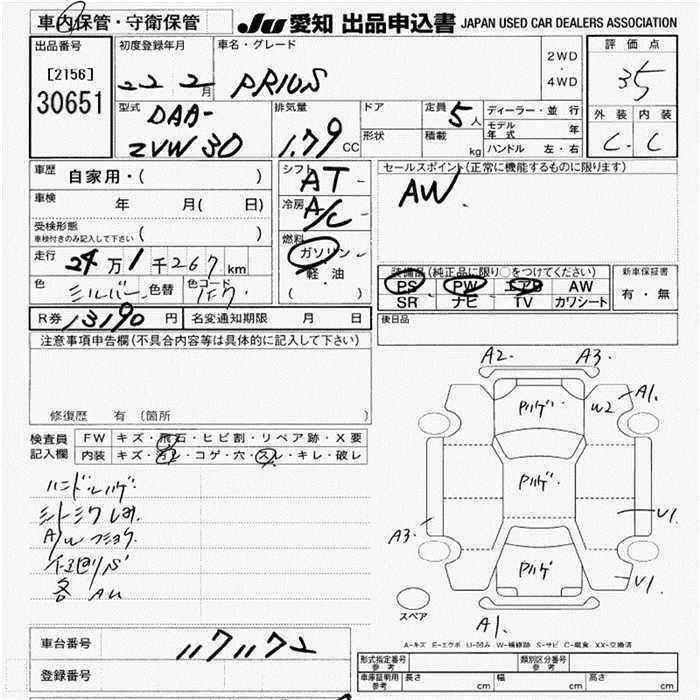 車内保管・守衛保管
JU 愛知 出品申込書 JAPAN USED CAR DEALERS ASSOCIATION
出品番号
[2156]
30651
初度登録年月
22 2月
車名・グレード
PRIUS
2WD
・
4WD
評価点
3.5
外装 内装
C - C
型式
DAA-
ZVW30
排気量
1.79 CC
ドア
形状
定員 5人
積載 kg
ディーラー・並行
モデル年式 年
ハンドル 左・右
車歴 自家用・( )
車検 年 月( 日)
受検形態
車検付きのみ記入して下さい ( )
走行 24万1千267km
色 シルバー 色替 色コード 1F7
シフト AT
冷房 A/C
燃料
ガソリン
軽油
( )
セールスポイント(正常に機能するものに限ります)
AW.
装備品(純正品に限り○をつけてください)
PS PW エアB AW
SR ナビ TV カワシート
新車保証書
有・無
R券 13190円 名変通知期限 月 日
後日品
注意事項申告欄(不具合内容等は具体的に記入して下さい)
修復歴 有 (箇所 )
検査員記入欄
FW キズ・飛石・ヒビ割・リペア跡・X要
内装 キズ・ヨゴレ・コゲ・穴・スレ・キレ・破レ
ハンドルハゲ
各 AU
A2. A3.
A1.
W2
ハゲ
ハゲ
ハゲ
A3.
U1
U1.
A1.
スペア
A-キズ E-エクボ U-凹み W-補修跡 S-サビ C-腐食 XX-交換済
車台番号 1171172
登録番号
形式指定番号 参考
類別区分番号 参考
車庫証明用 参考 長さ cm 幅 cm 高さ cm